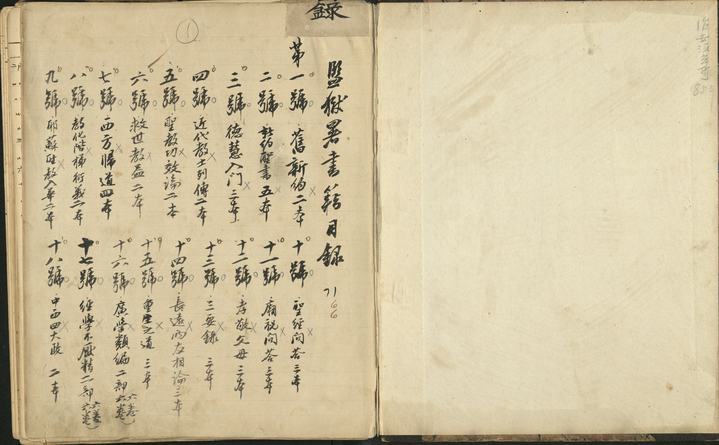 錄
①
監獄署書籍目錄
第一號 舊新約二本
二號 新約聖書五本
三號 德慧入门三本
四號 近代教士列傳二本
五號 聖教功效論二本
六號 救世教益二本
七號 西方歸道四本
八號 教化階梯衍義二本
九號 耶蘇敎入華二本
十號 聖經問答三本
十一號 廟祝問答三本
十二號 孝敬父母三本
十三號 三要錄 三本
十四號 長遠兩友相論三本
十五號 重生之道 三本
十六號 廣學類編二部 六卷
十七號 經學不厭精二部 六卷
十八號 中西四大政 二本